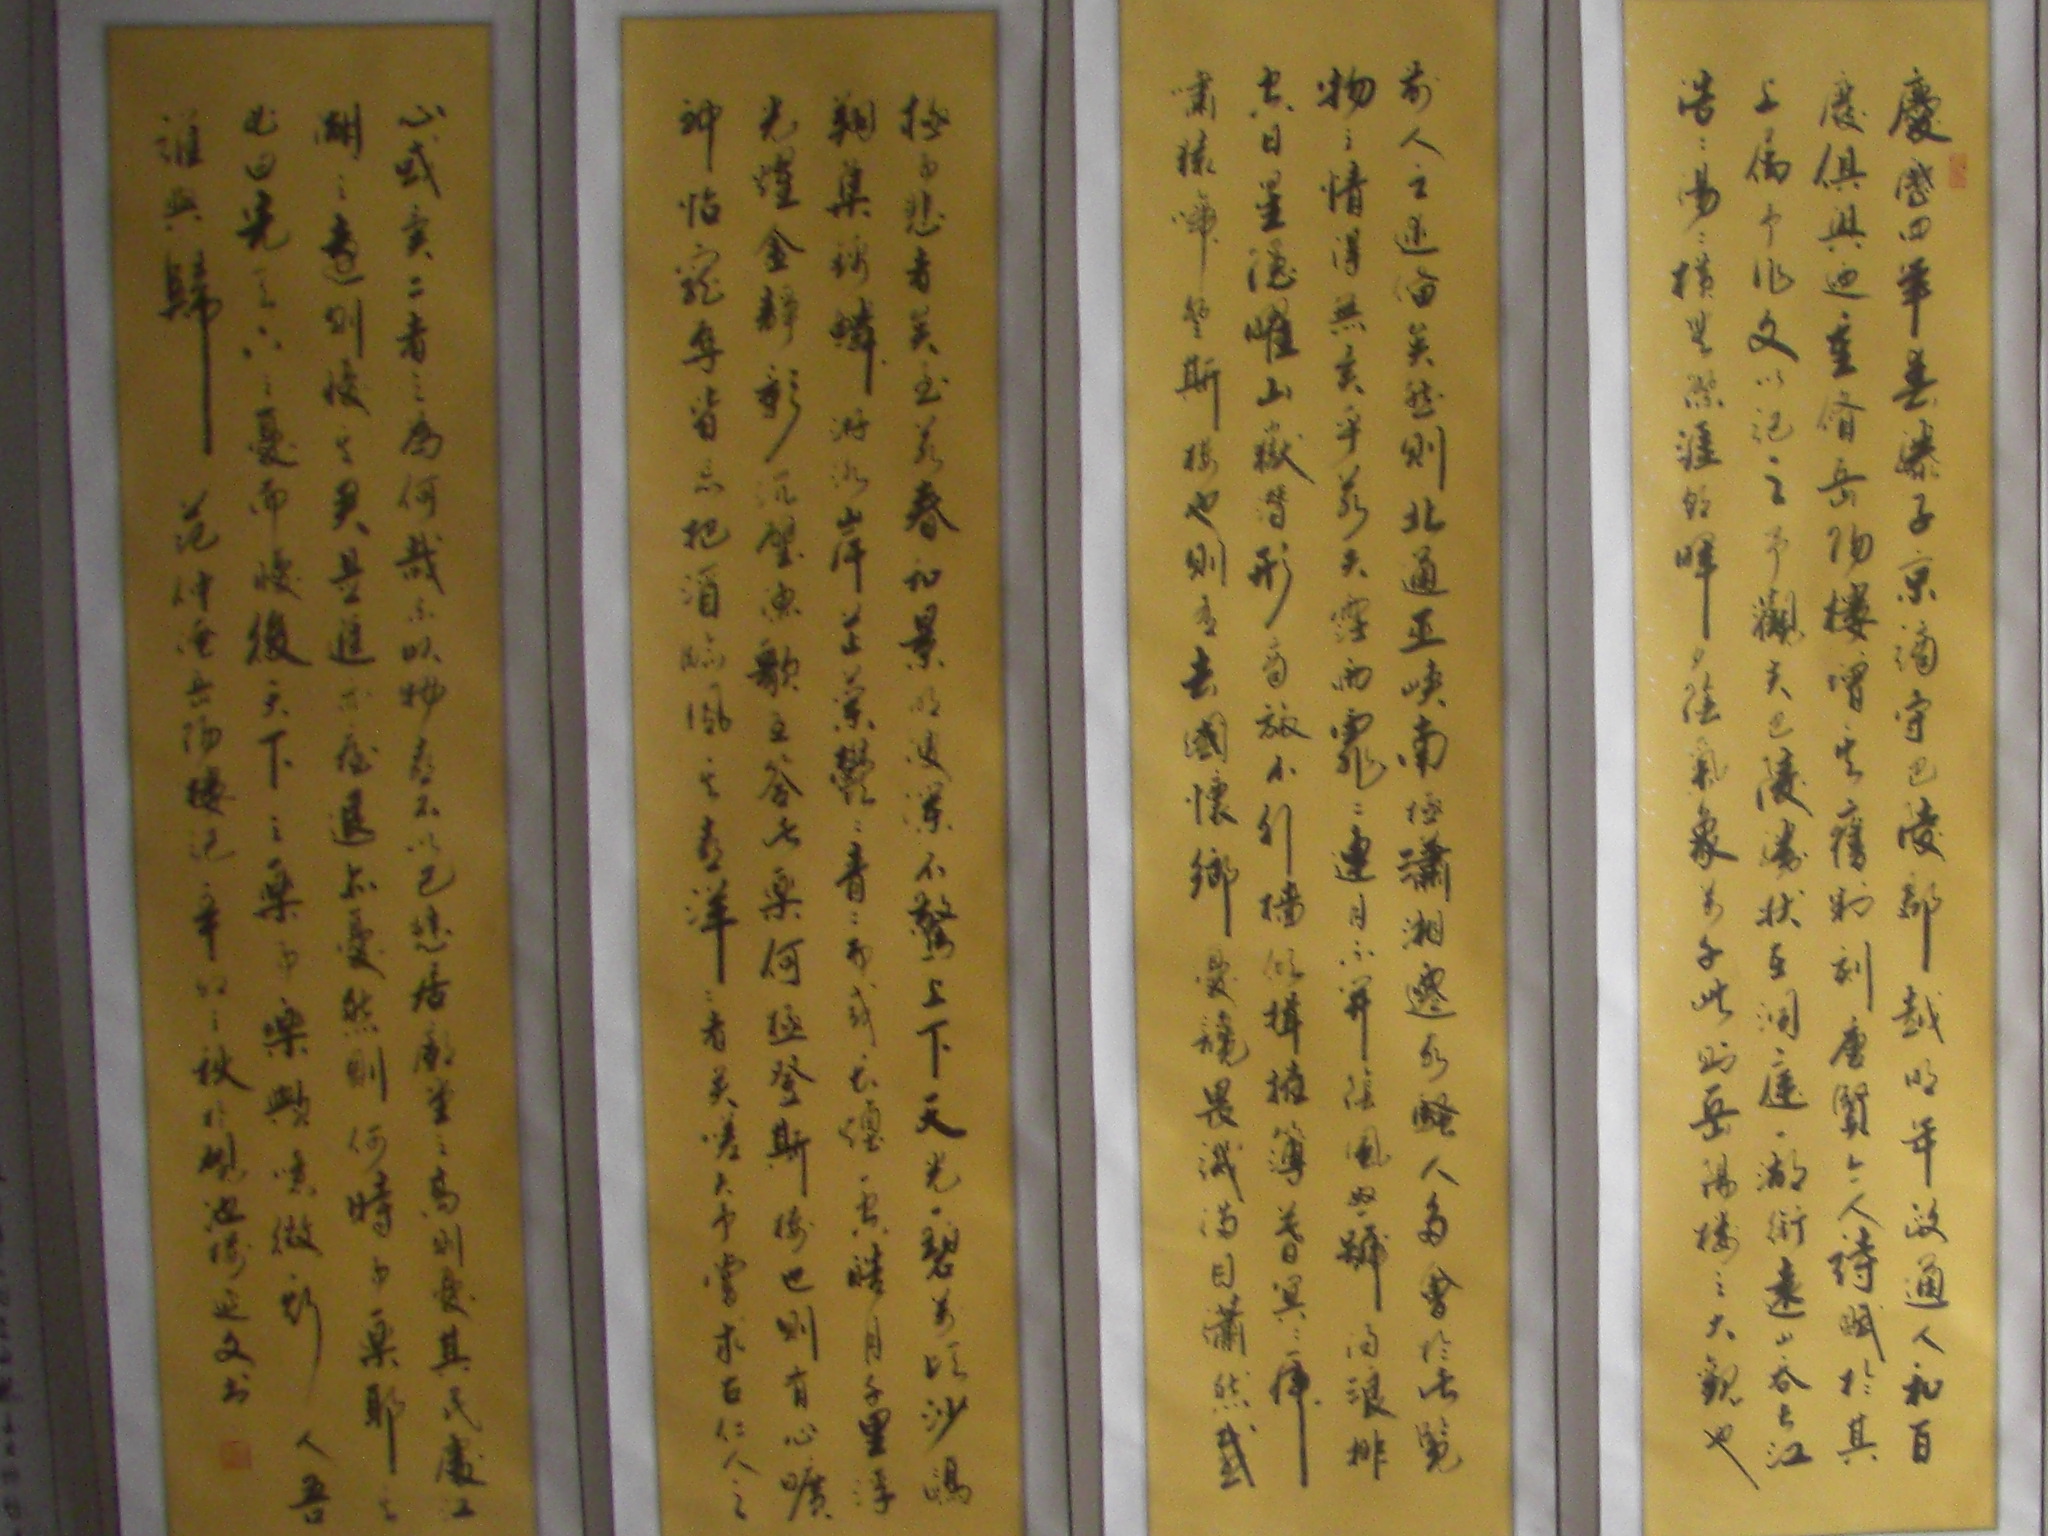 慶曆四年春滕子京謫守巴陵郡越明年政通人和百
廢俱興迺重脩岳陽樓增其舊制刻唐賢今人詩賦於其
上屬予作文以記之予觀夫巴陵勝狀在洞庭一湖銜遠山吞長江
浩〻湯〻橫無際涯朝暉夕陰氣象萬千此則岳陽樓之大觀也
前人之述備矣然則北通巫峽南極瀟湘遷客騷人多會於此覽
物之情得無異乎若夫霪雨霏〻連月不開陰風怒號濁浪排
空日星隱耀山嶽潛形商旅不行檣傾楫摧薄暮冥〻虎
嘯猿啼登斯樓也則有去國懷鄉憂讒畏譏滿目蕭然感
極而悲者矣至若春和景明波瀾不驚上下天光一碧萬頃沙鷗
翔集錦鱗游泳岸芷蘭鬱〻青〻而或長煙一空皓月千里浮
光耀金靜影沉璧漁歌互答此樂何極登斯樓也則有心曠
神怡寵辱皆忘把酒臨風其喜洋〻者矣嗟夫予嘗求古仁人之
心或異二者之為何哉不以物喜不以己悲居廟堂之高則憂其民處江
湖之遠則憂其君是進亦憂退亦憂然則何時而樂耶其
必曰先天下之憂而憂後天下之樂而樂歟噫微斯人吾
誰與歸 范仲淹岳陽樓記 辛卯之秋於硯池樓 文書